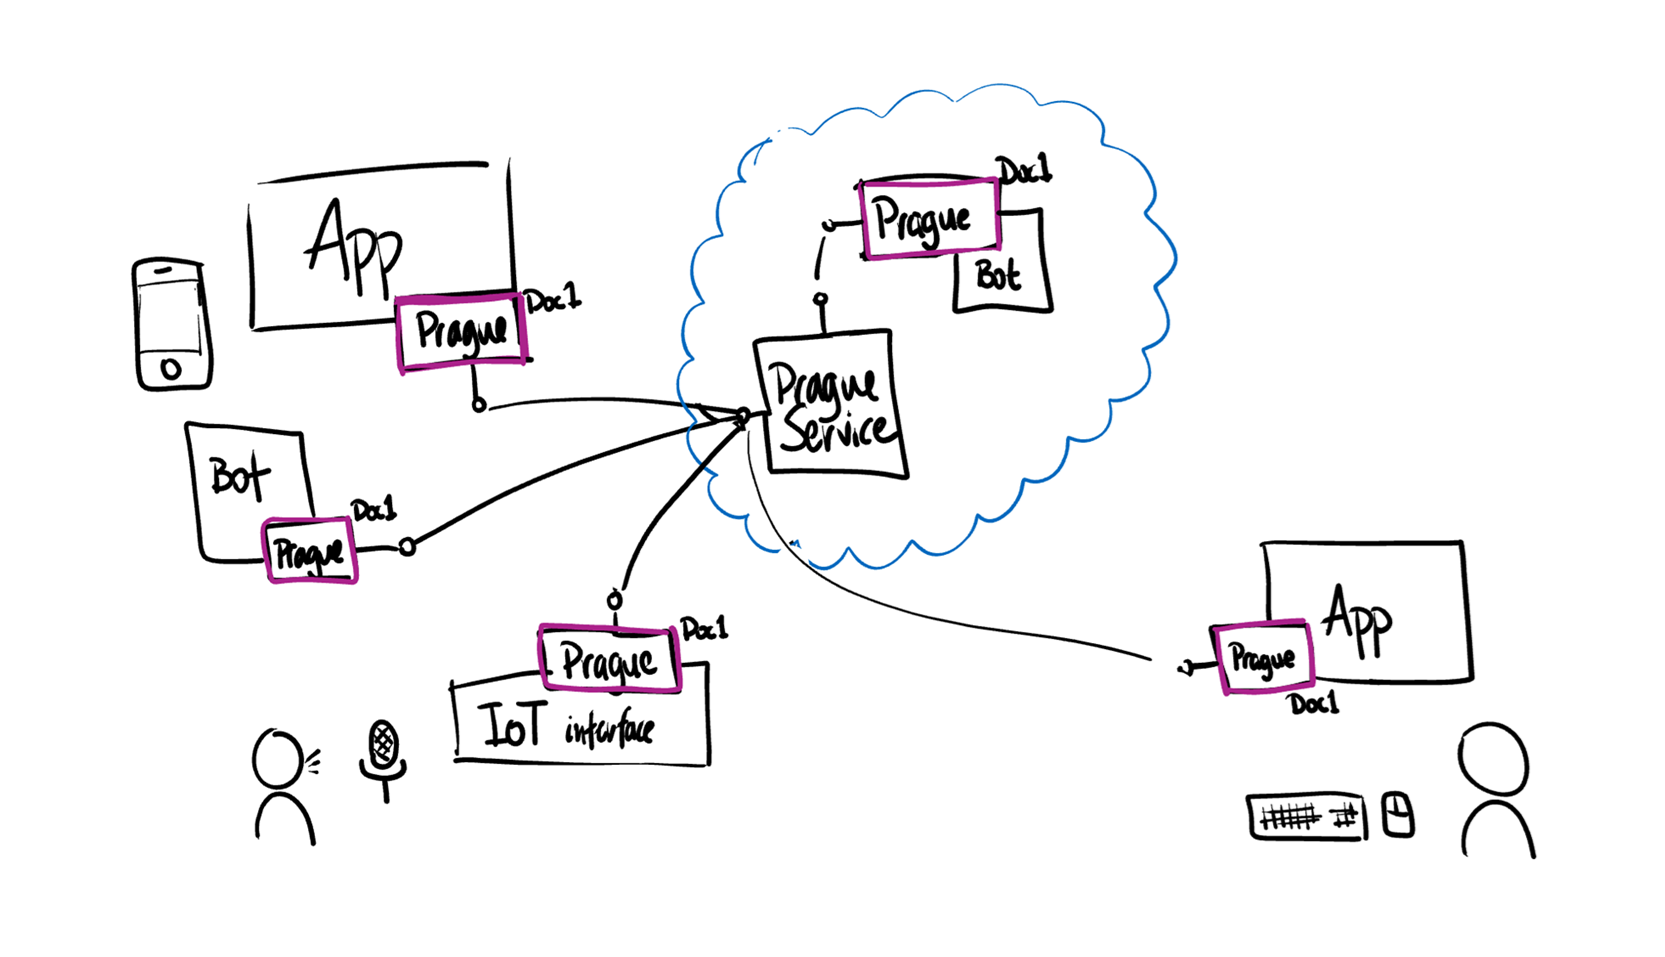 App
Prague
Doc1
Bot
Prague
Doc1
Prague
Doc1
IoT interface
Prague
Doc1
Bot
Prague
Service
App
Prague
Doc1